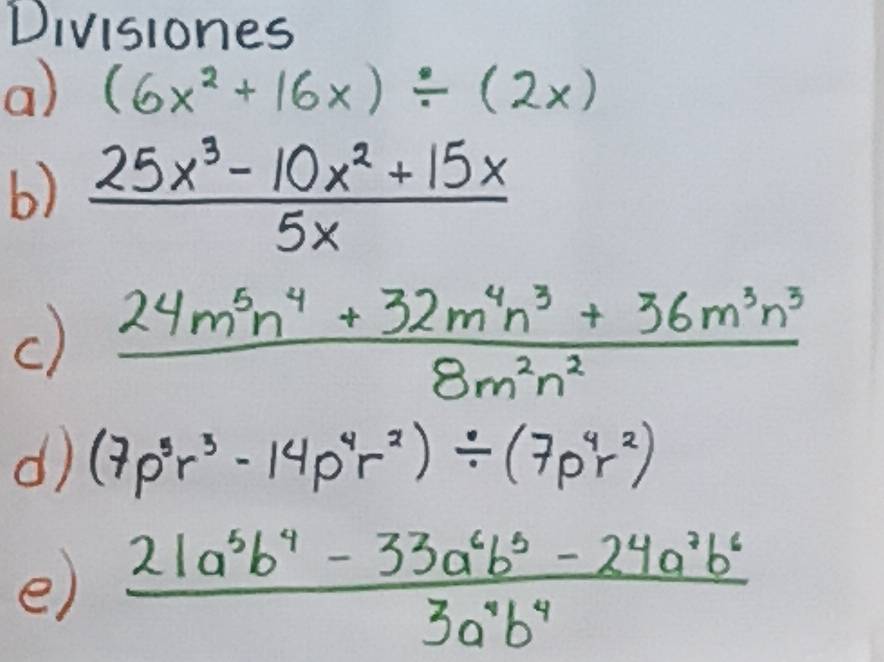 Divisiones
a) (6x² + 16x) ÷ (2x)
b) 25x³ - 10x² + 15x
5x
c) 24m⁵n⁴ + 32m⁴n³ + 36m³n³
8m²n²
d) (7p⁵r³ - 14p⁴r²) ÷ (7p⁴r²)
e) 21a⁵b⁴ - 33a⁶b⁵ - 24a⁷b⁶
3a⁴b⁴